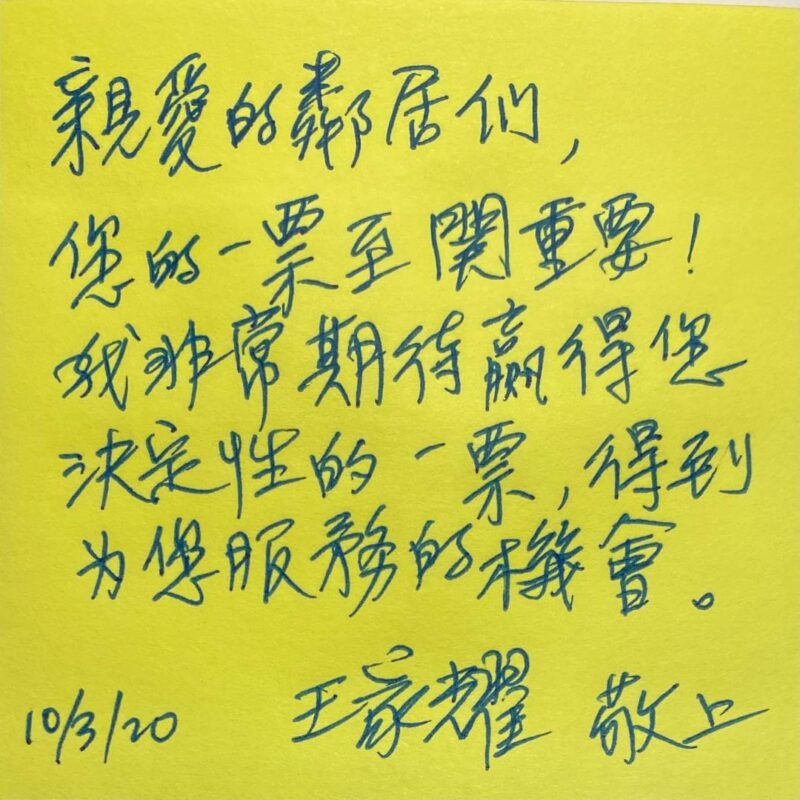 親愛的鄰居们,
您的一票至関重要!
我非常期待赢得您
決定性的一票,得到
为您服務的機會。
10/3/20 王家耀 敬上